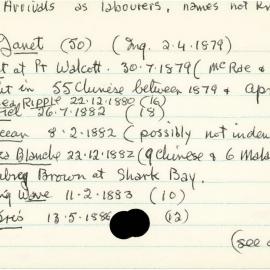 Arrivals as labourers, names not kn
Janet (50) (Inq. 2.4.1879)
t at Pt Walcott. 30.7.1879 (McRae &
it in 55 Chinese between 1879 & Apr
Ripple 22.12.1880 (16)
26.7.1882 (18)
8.2.1882 (possibly not inden
Blanche 22.12.1882 (9 Chinese & 6 Mala
Brown at Shark Bay.
Wave 11.2.1883 (10)
13.5.1886 (12)
(see